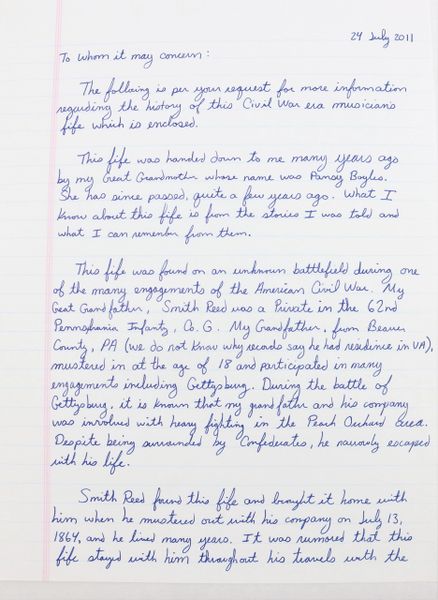 24 July 2011
To whom it may concern:
The following is per your request for more information
regarding the history of this Civil War era musicians
fife which is enclosed.
This fife was handed down to me many years ago
by my Great Grandmother whose name was Pansy Boyles.
She has since passed, quite a few years ago. What I
know about this fife is from the stories I was told and
what I can remember from them.
This fife was found on an unknown battlefield during one
of the many engagements of the American Civil War. My
Great Grandfather, Smith Reed was a Private in the 62nd
Pennsylvania Infantry, Co. G. My Grandfather, from Beaver
County, PA (we do not know why records say he had residence in VA),
mustered in at the age of 18 and participated in many
engagements including Gettysburg. During the battle of
Gettysburg, it is known that my grandfather and his company
was involved with heavy fighting in the Peach Orchard area.
Despite being surrounded by Confederates, he narrowly escaped
with his life.
Smith Reed found this fife and brought it home with
him when he mustered out with his company on July 13,
1864, and he lived many years. It was rumored that this
fife stayed with him throughout his travels with the